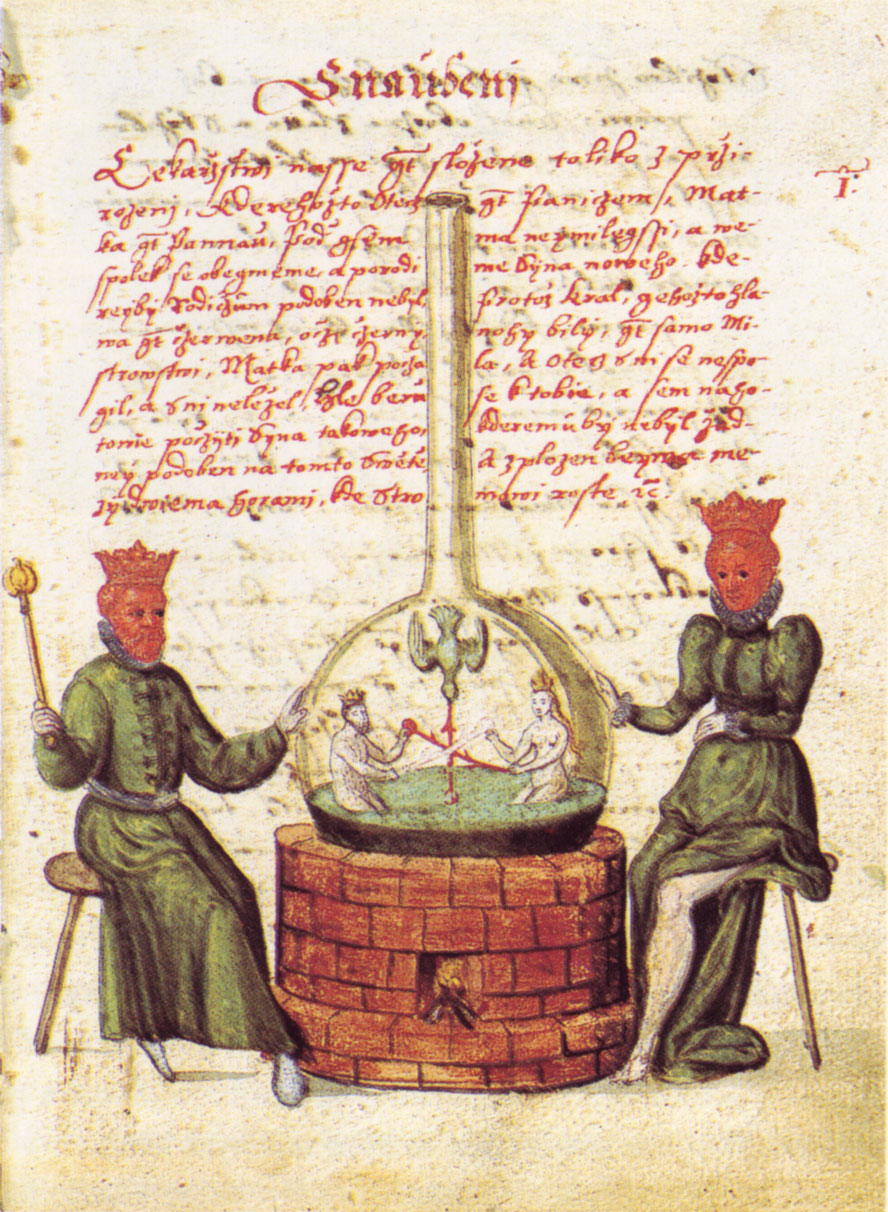 Snaubenj
Lekarzstwi nasse gt slożene toliko z przi-
rozenj, kderehożto Otecz gt Paniczem, Mat-
ka gt Pannau, Pod gsem ma neymilegssi, a we-
spolek se obegmeme, a porodi me Syna noweho. kde-
reyby Rodiczům podoben nebyl, Protoż kral, gehożto hla-
wa gt czerwena, oczi czerny nohy bily, gt samo Mi-
strowstwi, Matka pak pocza la, A otecz s ni se nespo-
gil, a s ni neleżel, hle beru se k tobie, a sem naho-
towie pożiti Syna takoweho, kderemu by nebyl żad-
ney podoben na tomto Swěte, A zplozen beywa me-
zy dwiema horami, kde Stro mowi roste ꝛc.
I: